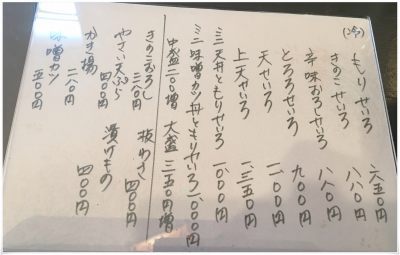 (冷)
もりせいろ 六五〇円
きのこせいろ 八八〇円
辛味おろしせいろ 八八〇円
とろろせいろ 九〇〇円
天せいろ 一、一〇〇円
上天せいろ 一、三五〇円
ミニ天丼ともりせいろ 一、〇〇〇円
ミニ味噌カツ丼ともりせいろ 一、〇〇〇円
中盛二〇〇増 大盛三五〇円増
きのこおろし 三〇〇円 板わさ 四〇〇円
やさい天ぷら 四〇〇円 漬けもの 四〇〇円
かき揚 二八〇円
味噌カツ 五〇〇円